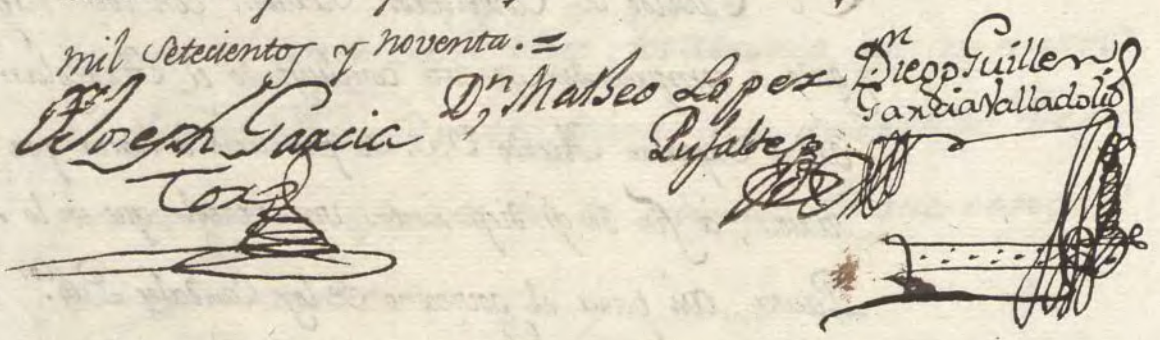 mil setecientos y noventa.=
Dn Joseph Garcia
Toxo
Dn Matheo Lopez
Pujalte
Dn Diego Guillen
Garcia Valladolid